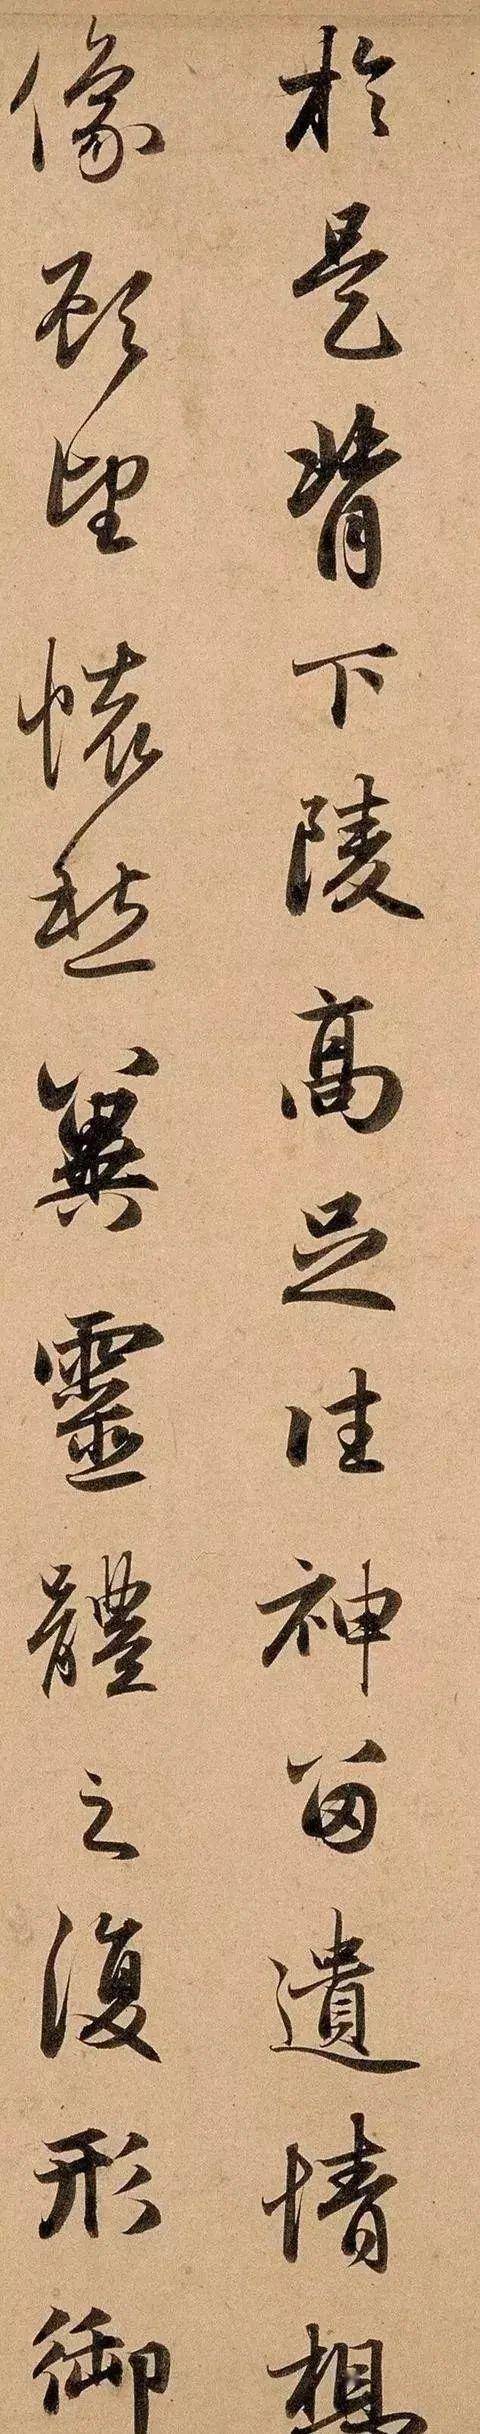 於是背下陵高足往神留遺情想
像顧望懷愁冀靈體之復形御